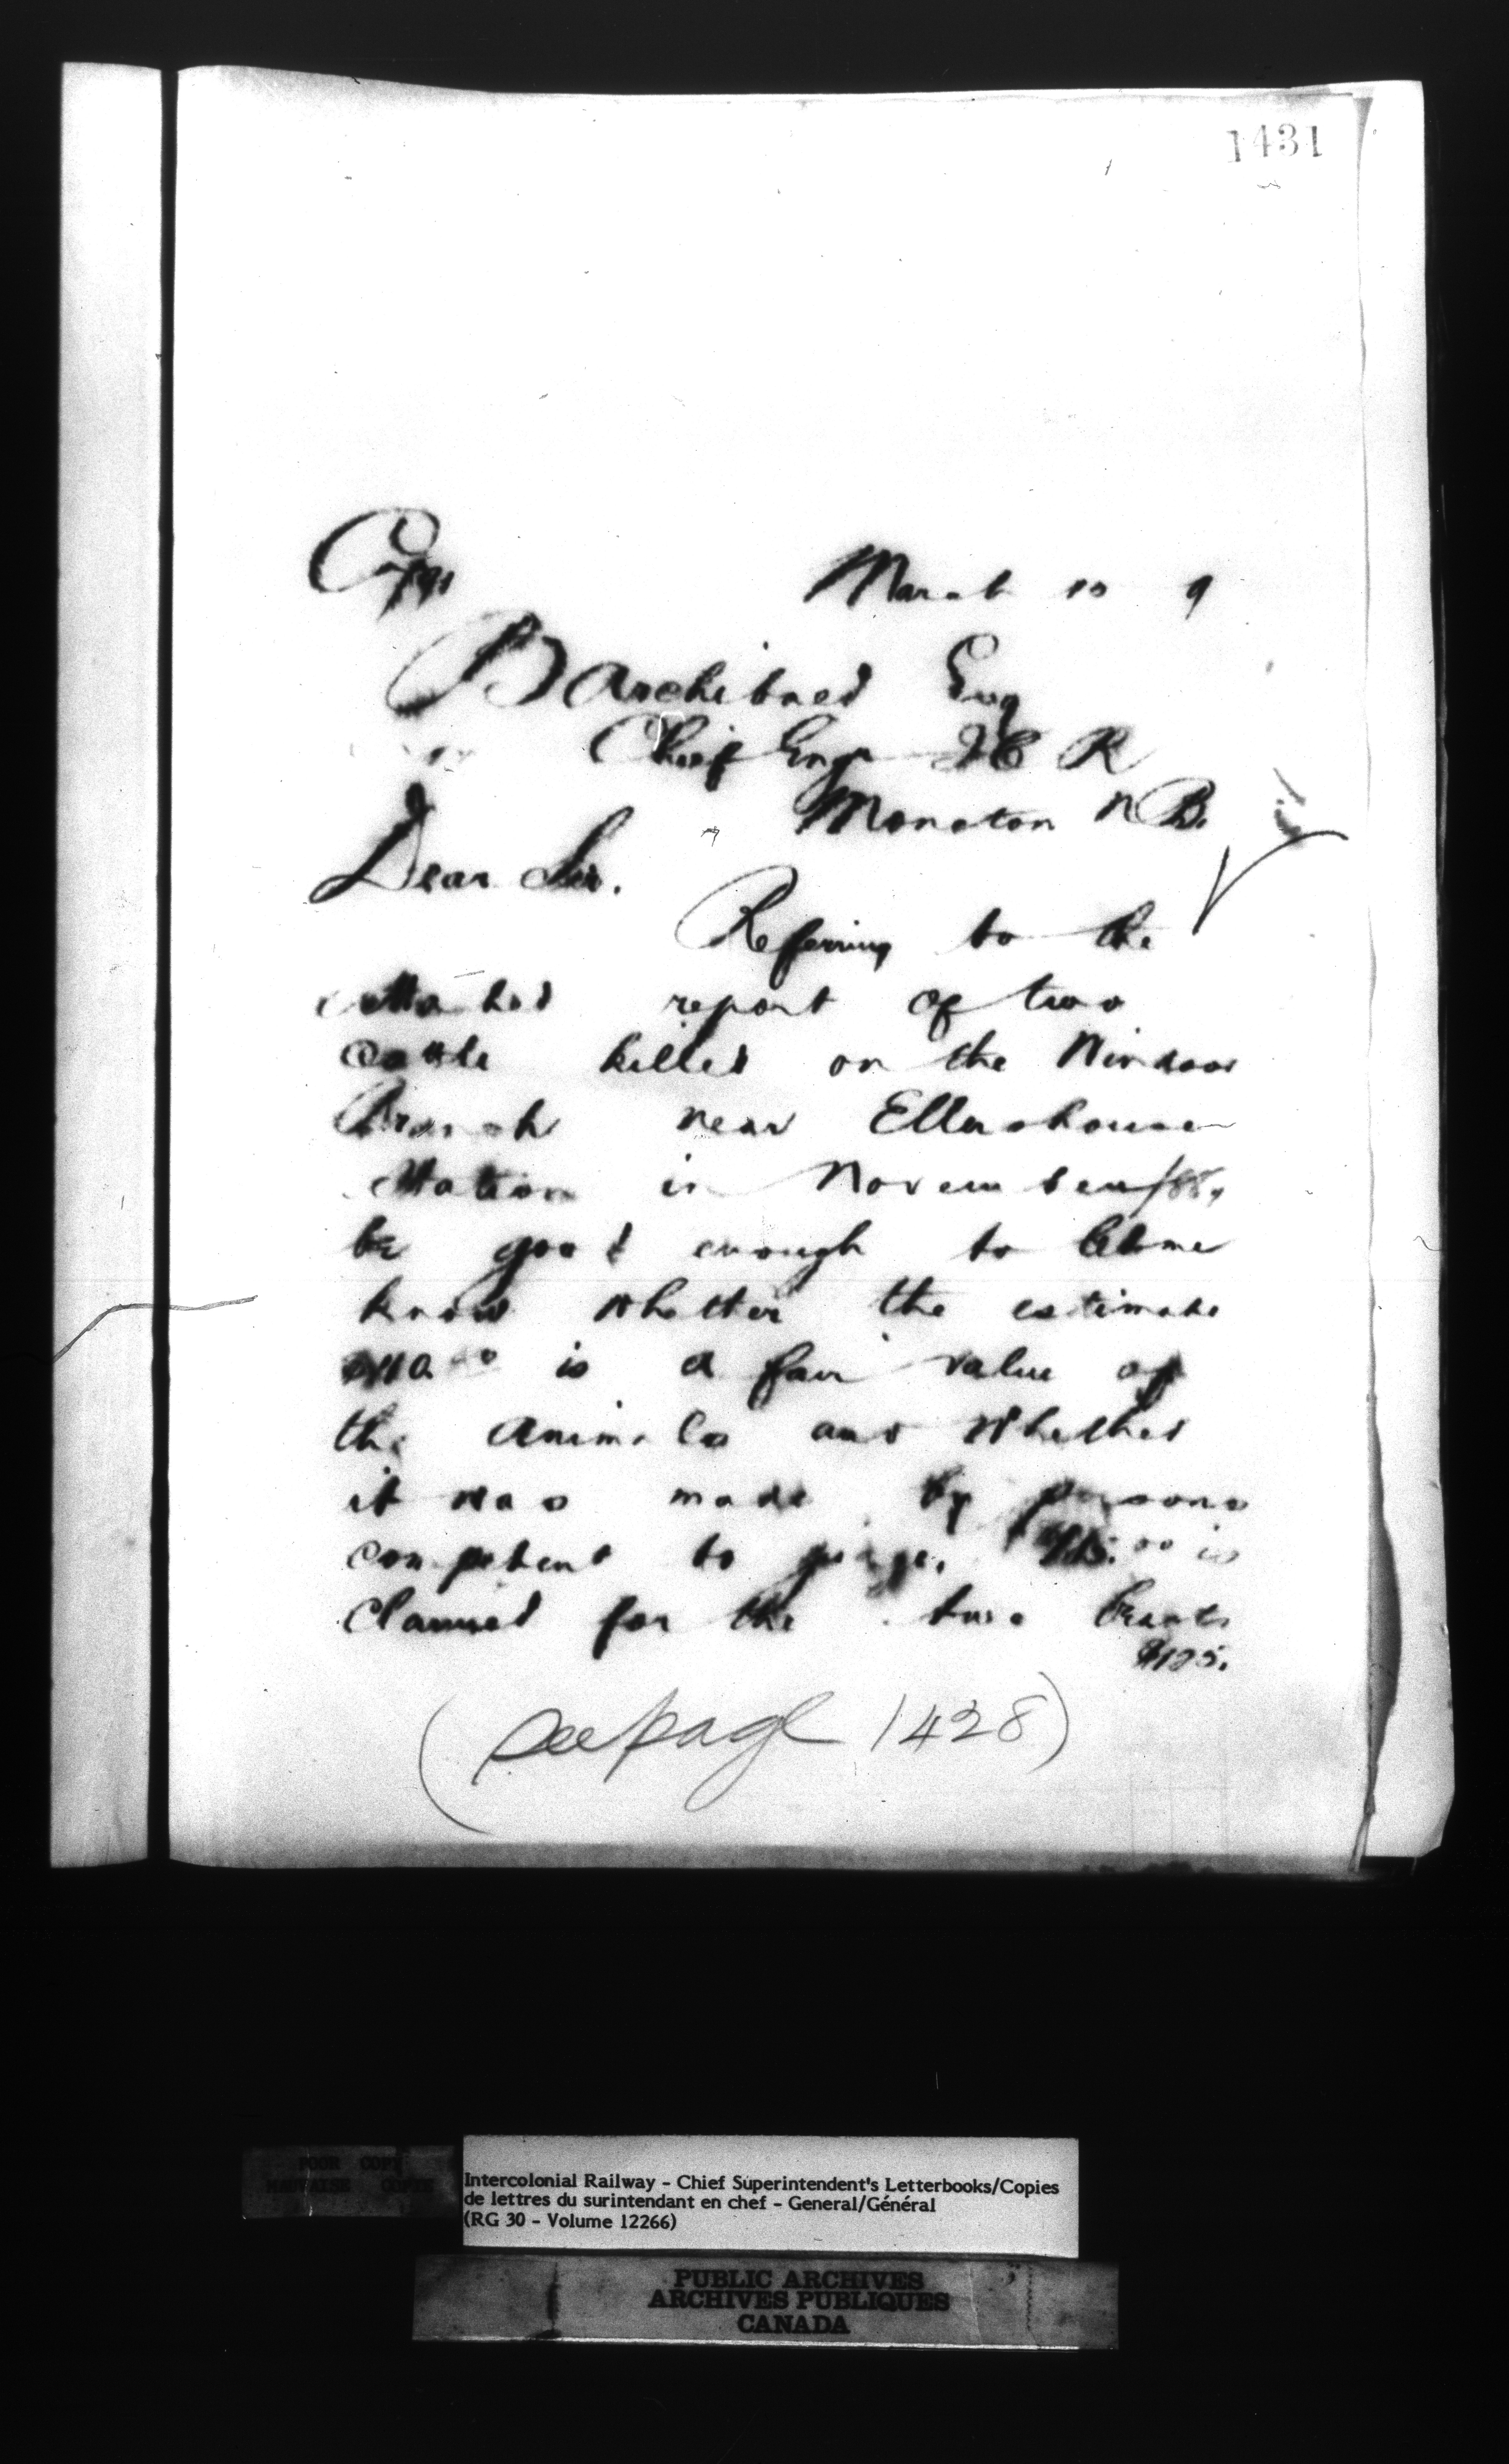 1431
Copy
March 10 9
P Archibald Esq
Chief Engr I C R
Moncton N B.
Dear Sir.
Referring to the
attached report of two
cattle killed on the Windsor
Branch near Ellershouse
Station in November/88,
be good enough to let me
know whether the estimate
made is a fair value of
the animals and whether
it was made by persons
competent to judge. is
claimed for the two beasts
$125.
(see page 1428)
POOR COPY
MAUVAISE COPIE
Intercolonial Railway - Chief Superintendent's Letterbooks/Copies
de lettres du surintendant en chef - General/Général
(RG 30 - Volume 12266)
PUBLIC ARCHIVES
ARCHIVES PUBLIQUES
CANADA